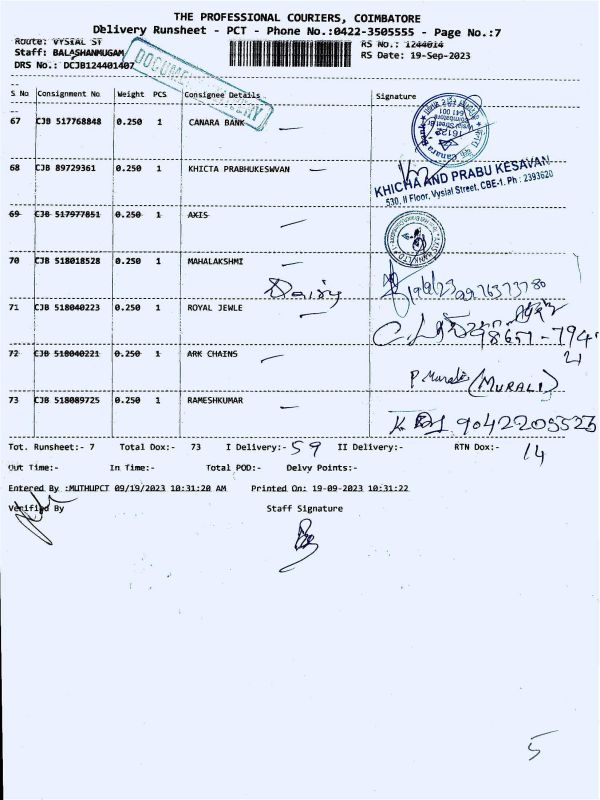 THE PROFESSIONAL COURIERS, COIMBATORE
Delivery Runsheet - PCT - Phone No.:0422-3505555 - Page No.:7
Route: VYSIAL ST RS No.: 1244014
Staff: BALASHANMUGAM RS Date: 19-Sep-2023
DRS No.: DCJB124401407
DOCUMENT
S No Consignment No Weight PCS Consignee Details Signature
67 CJB 517768848 0.250 1 CANARA BANK
68 CJB 89729361 0.250 1 KHICTA PRABHUKESWVAN
KHICHA AND PRABU KESAVAN
530, II Floor, Vysial Street, CBE-1. Ph : 2393620
69 CJB 517977851 0.250 1 AXIS
70 CJB 518018528 0.250 1 MAHALAKSHMI
Dairy
71 CJB 518040223 0.250 1 ROYAL JEWLE
72 CJB 518040221 0.250 1 ARK CHAINS
P Murali (MURALI)
73 CJB 518089725 0.250 1 RAMESHKUMAR
9042205523
Tot. Runsheet:- 7 Total Dox:- 73 I Delivery:- 59 II Delivery:- RTN Dox:- 14
Out Time:- In Time:- Total POD:- Delvy Points:-
Entered By :MUTHUPCT 09/19/2023 10:31:20 AM Printed On: 19-09-2023 10:31:22
Verified By Staff Signature
5